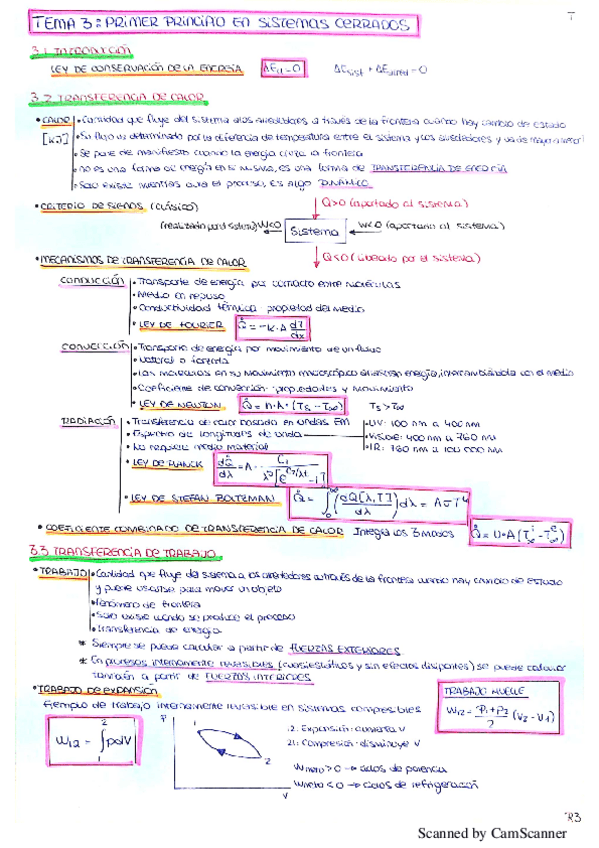 TEMA 3: PRIMER PRINCIPIO EN SISTEMAS CERRADOS
3.1 INTRODUCCIÓN
LEY DE CONSERVACIÓN DE LA ENERGÍA
3.2 TRANSFERENCIA DE CALOR
• CALOR • Cantidad que fluye del sistema a los alrededores a través de la frontera cuando hay cambio de estado
[KJ] • Su flujo es determinado por la diferencia de temperatura entre el sistema y los alrededores y va de mayor a menor
• Se pone de manifiesto cuando la energía cruza la frontera
• no es una forma de energía en si misma, es una forma de TRANSFERENCIA DE ENERGÍA
• Solo existe mientras dura el proceso, es algo DINÁMICO
• CRITERIO DE SIGNOS (clásico)
Q>0 (aportado al sistema)
(realizado por el sistema) W<0
Sistema
W<0 (aportado al sistema)
Q<0 (liberado por el sistema)
• MECANISMOS DE TRANSFERENCIA DE CALOR
CONDUCCIÓN • Transporte de energía por contacto entre moléculas
• Medio en reposo
• Conductividad térmica: propiedad del medio
• LEY DE FOURIER Q̇ = -K·A dT/dx
CONVECCIÓN • Transporte de energía por movimiento de un fluido
• Natural o forzada
• Las moléculas en su movimiento macroscópico energía, intercambiándola con el medio
• Coeficiente de convección: propiedades y movimiento
• LEY DE NEWTON Q̇ = h·A·(Ts - T∞) Ts > T∞
RADIACIÓN • Transferencia de calor basado en ondas EM
• Espectro de longitudes de onda
UV: 100 nm a 400 nm
Visible: 400 nm a 760 nm
IR: 760 nm a 100 000 nm
• No requiere medio material
• LEY DE PLANCK
• LEY DE STEFAN BOLTZMAN
• COEFICIENTE COMBINADO DE TRANSFERENCIA DE CALOR Integra los 3 modos
3.3 TRANSFERENCIA DE TRABAJO
• TRABAJO • Cantidad que fluye del sistema a los alrededores a través de la frontera cuando hay cambio de estado
y puede usarse para mover un objeto
• Fenómeno de frontera
• Solo existe cuando se produce el proceso
• Transferencia de energía
* Siempre se puede calcular a partir de FUERZAS EXTERIORES
* En procesos internamente reversibles (cuasiestáticos y sin efectos disipantes) se puede calcular
también a partir de FUERZAS INTERIORES
• TRABAJO DE EXPANSIÓN
Ejemplo de trabajo internamente reversible en sistemas compresibles
W12 = ∫ pdV
P
1
2
V
12: Expansión: aumenta V
21: Compresión: disminuye V
Wneto > 0 → ciclos de potencia
Wneto < 0 → ciclos de refrigeración
TRABAJO MUELLE
W12 = P1+P2/2 (V2 - V1)
Scanned by CamScanner